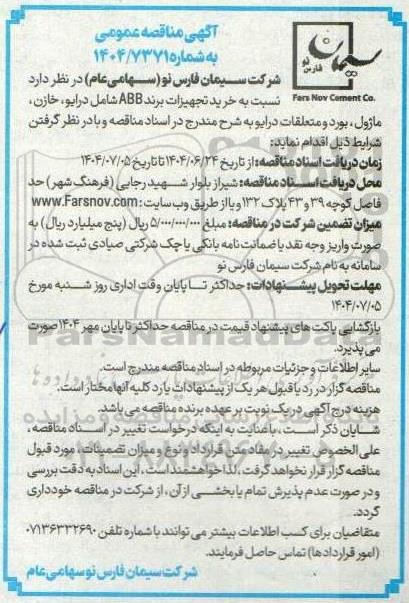 آگهی مناقصه عمومی
به شماره ۱۴۰۴/۷۳۷۱
سیمان
نو
فارس
Fars Nov Cement Co.
شرکت سیمان فارس نو (سهامی عام) در نظر دارد
نسبت به خرید تجهیزات برند ABB شامل درایو، خازن،
ماژول، بورد و متعلقات درایو به شرح مندرج در اسناد مناقصه و با در نظر گرفتن
شرایط ذیل اقدام نماید:
زمان دریافت اسناد مناقصه: از تاریخ ۱۴۰۴/۰۶/۲۴ تا تاریخ ۱۴۰۴/۰۷/۰۵
محل دریافت اسناد مناقصه: شیراز بلوار شهید رجایی (فرهنگ شهر) حد
فاصل کوچه ۳۹ و ۴۳ پلاک ۱۳۲ و یا از طریق وب سایت: www.Farsnov.com
میزان تضمین شرکت در مناقصه: مبلغ ۵/۰۰۰/۰۰۰/۰۰۰ ریال (پنج میلیارد ریال) به
صورت واریز وجه نقد یا ضمانت نامه بانکی یا چک شرکتی صیادی ثبت شده در
سامانه به نام شرکت سیمان فارس نو
مهلت تحویل پیشنهادات: حداکثر تا پایان وقت اداری روز شنبه مورخ
۱۴۰۴/۰۷/۰۵
بازگشایی پاکت های پیشنهاد قیمت در مناقصه حداکثر تا پایان مهر ۱۴۰۴ صورت
می پذیرد.
سایر اطلاعات و جزئیات مربوطه در اسناد مناقصه مندرج است.
مناقصه گزار در رد یا قبول هر یک از پیشنهادات یا رد کلیه آنها مختار است.
هزینه درج آگهی در یک نوبت بر عهده برنده مناقصه می باشد.
شایان ذکر است، با عنایت به اینکه درخواست تغییر در اسناد مناقصه،
علی الخصوص تغییر در مفاد متن قرارداد و نوع و میزان تضمینات، مورد قبول
مناقصه گزار قرار نخواهد گرفت، لذا خواهشمند است، این اسناد به دقت بررسی
و در صورت عدم پذیرش تمام یا بخشی از آن، از شرکت در مناقصه خودداری
گردد.
متقاضیان برای کسب اطلاعات بیشتر می توانند با شماره تلفن ۰۷۱۳۶۳۳۲۶۹۰
(امور قراردادها) تماس حاصل فرمایند.
شرکت سیمان فارس نو سهامی عام